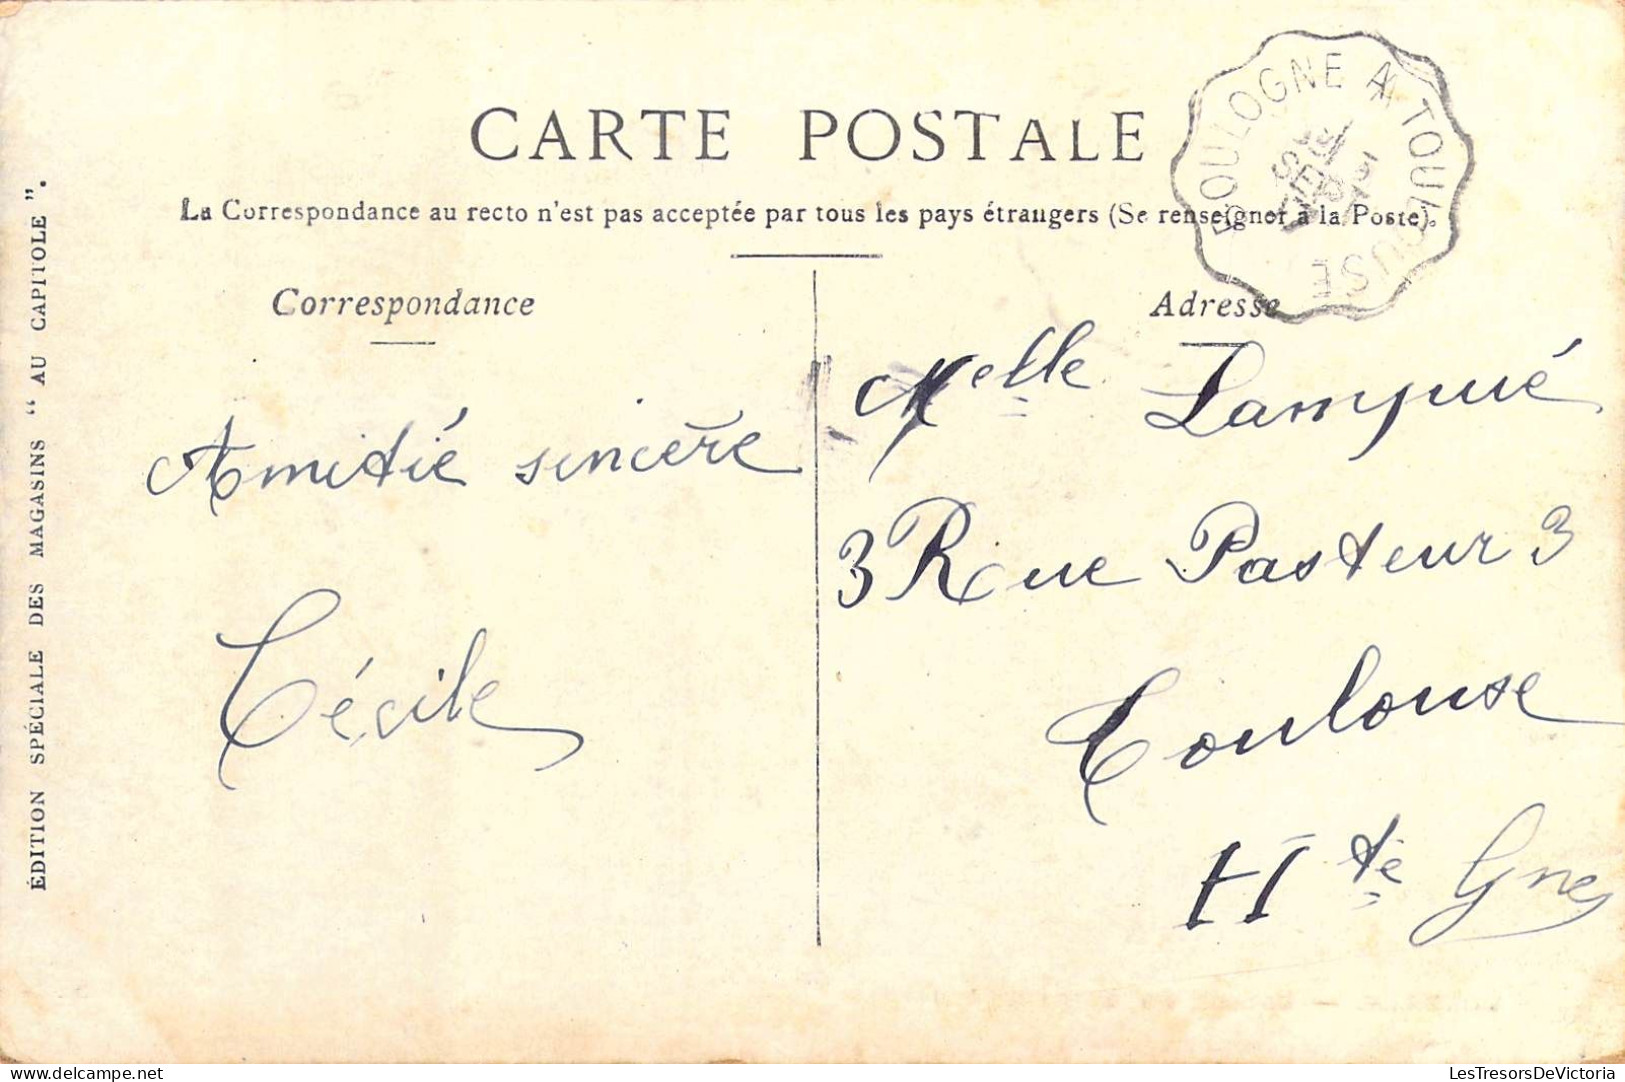 CARTE POSTALE
La Correspondance au recto n'est pas acceptée par tous les pays étrangers (Se renseigner à la Poste).
Correspondance
Adresse
BOULOGNE A TOULOUSE
SEPT
ÉDITION SPÉCIALE DES MAGASINS “ AU CAPITOLE ”.
Amitié sincère
Cécile
Melle Lampué
3 Rue Pasteur 3
Toulouse
Hte Gne
LesTresorsDeVictoria